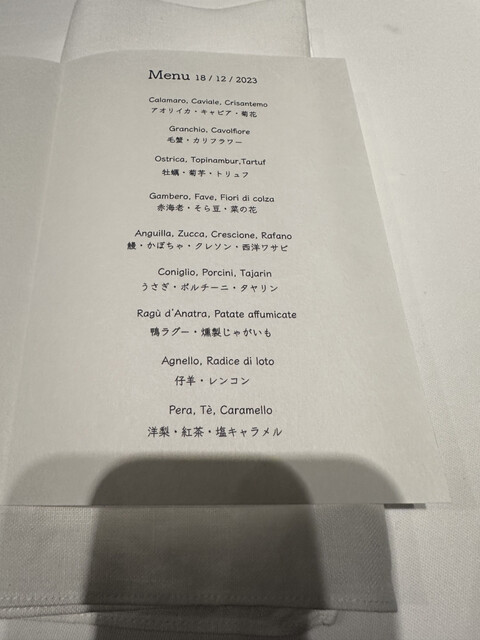 Menu 18 / 12 / 2023
Calamaro, Caviale, Crisantemo
アオリイカ・キャビア・菊花
Granchio, Cavolfiore
毛蟹・カリフラワー
Ostrica, Topinambur,Tartuf
牡蠣・菊芋・トリュフ
Gambero, Fave, Fiori di colza
赤海老・そら豆・菜の花
Anguilla, Zucca, Crescione, Rafano
鰻・かぼちゃ・クレソン・西洋ワサビ
Coniglio, Porcini, Tajarin
うさぎ・ポルチーニ・タヤリン
Ragù d'Anatra, Patate affumicate
鴨ラグー・燻製じゃがいも
Agnello, Radice di loto
仔羊・レンコン
Pera, Tè, Caramello
洋梨・紅茶・塩キャラメル